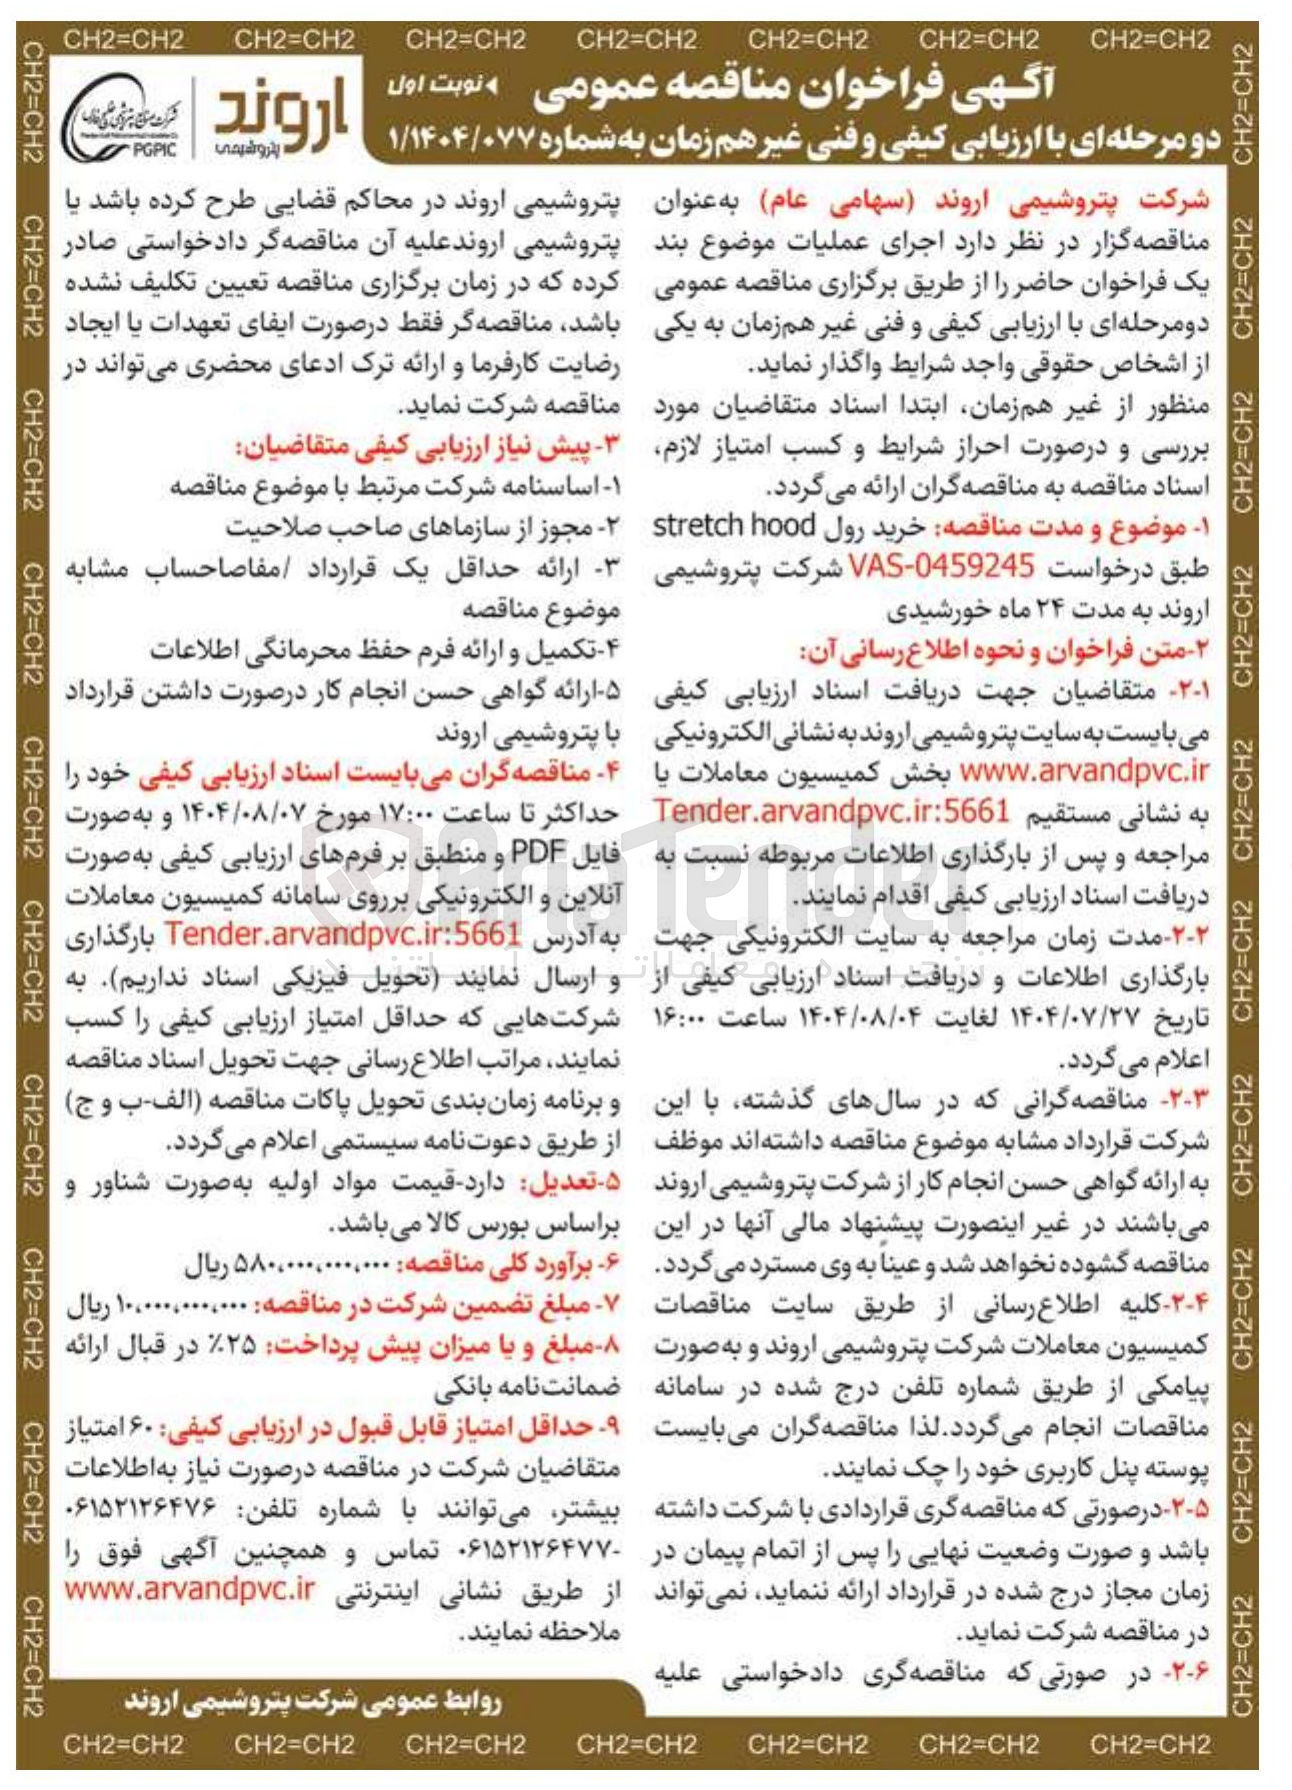 CH2=CH2 CH2=CH2 CH2=CH2 CH2=CH2 CH2=CH2 CH2=CH2 CH2=CH2
آگهی فراخوان مناقصه عمومی
نوبت اول
دو مرحله‌ای با ارزیابی کیفی و فنی غیر هم‌زمان به‌شماره ۱/۱۴۰۴/۰۷۷
اروند
پتروشیمی
PGPIC
شرکت پتروشیمی اروند (سهامی عام) به‌عنوان
مناقصه‌گزار در نظر دارد اجرای عملیات موضوع بند
یک فراخوان حاضر را از طریق برگزاری مناقصه عمومی
دومرحله‌ای با ارزیابی کیفی و فنی غیر هم‌زمان به یکی
از اشخاص حقوقی واجد شرایط واگذار نماید.
منظور از غیر هم‌زمان، ابتدا اسناد متقاضیان مورد
بررسی و درصورت احراز شرایط و کسب امتیاز لازم،
اسناد مناقصه به مناقصه‌گران ارائه می‌گردد.
۱- موضوع و مدت مناقصه: خرید رول stretch hood
طبق درخواست VAS-0459245 شرکت پتروشیمی
اروند به مدت ۲۴ ماه خورشیدی
۲-متن فراخوان و نحوه اطلاع‌رسانی آن:
۲-۱- متقاضیان جهت دریافت اسناد ارزیابی کیفی
می‌بایست به سایت پتروشیمی اروند به نشانی الکترونیکی
www.arvandpvc.ir بخش کمیسیون معاملات یا
به نشانی مستقیم Tender.arvandpvc.ir:5661
مراجعه و پس از بارگذاری اطلاعات مربوطه نسبت به
دریافت اسناد ارزیابی کیفی اقدام نمایند.
۲-۲-مدت زمان مراجعه به سایت الکترونیکی جهت
بارگذاری اطلاعات و دریافت اسناد ارزیابی کیفی از
تاریخ ۱۴۰۴/۰۷/۲۷ لغایت ۱۴۰۴/۰۸/۰۴ ساعت ۱۶:۰۰
اعلام می‌گردد.
۲-۳- مناقصه‌گرانی که در سال‌های گذشته، با این
شرکت قرارداد مشابه موضوع مناقصه داشته‌اند موظف
به ارائه گواهی حسن انجام کار از شرکت پتروشیمی اروند
می‌باشند در غیر اینصورت پیشنهاد مالی آنها در این
مناقصه گشوده نخواهد شد و عیناً به وی مسترد می‌گردد.
۲-۴-کلیه اطلاع‌رسانی از طریق سایت مناقصات
کمیسیون معاملات شرکت پتروشیمی اروند و به‌صورت
پیامکی از طریق شماره تلفن درج شده در سامانه
مناقصات انجام می‌گردد.لذا مناقصه‌گران می‌بایست
پوسته پنل کاربری خود را چک نمایند.
۲-۵-درصورتی که مناقصه‌گری قراردادی با شرکت داشته
باشد و صورت وضعیت نهایی را پس از اتمام پیمان در
زمان مجاز درج شده در قرارداد ارائه ننماید، نمی‌تواند
در مناقصه شرکت نماید.
۲-۶- در صورتی که مناقصه‌گری دادخواستی علیه
پتروشیمی اروند در محاکم قضایی طرح کرده باشد یا
پتروشیمی اروندعلیه آن مناقصه‌گر دادخواستی صادر
کرده که در زمان برگزاری مناقصه تعیین تکلیف نشده
باشد، مناقصه‌گر فقط درصورت ایفای تعهدات یا ایجاد
رضایت کارفرما و ارائه ترک ادعای محضری می‌تواند در
مناقصه شرکت نماید.
۳-پیش نیاز ارزیابی کیفی متقاضیان:
۱- اساسنامه شرکت مرتبط با موضوع مناقصه
۲- مجوز از سازماهای صاحب صلاحیت
۳- ارائه حداقل یک قرارداد /مفاصاحساب مشابه
موضوع مناقصه
۴-تکمیل و ارائه فرم حفظ محرمانگی اطلاعات
۵-ارائه گواهی حسن انجام کار درصورت داشتن قرارداد
با پتروشیمی اروند
۴- مناقصه‌گران می‌بایست اسناد ارزیابی کیفی خود را
حداکثر تا ساعت ۱۷:۰۰ مورخ ۱۴۰۴/۰۸/۰۷ و به‌صورت
فایل PDF و منطبق بر فرم‌های ارزیابی کیفی به‌صورت
آنلاین و الکترونیکی برروی سامانه کمیسیون معاملات
به آدرس Tender.arvandpvc.ir:5661 بارگذاری
و ارسال نمایند (تحویل فیزیکی اسناد نداریم). به
شرکت‌هایی که حداقل امتیاز ارزیابی کیفی را کسب
نمایند، مراتب اطلاع‌رسانی جهت تحویل اسناد مناقصه
و برنامه زمان‌بندی تحویل پاکات مناقصه (الف-ب و ج)
از طریق دعوت‌نامه سیستمی اعلام می‌گردد.
۵-تعدیل: دارد-قیمت مواد اولیه به‌صورت شناور و
براساس بورس کالا می‌باشد.
۶- برآورد کلی مناقصه: ۵۸۰،۰۰۰،۰۰۰،۰۰۰ ریال
۷- مبلغ تضمین شرکت در مناقصه: ۱۰،۰۰۰،۰۰۰،۰۰۰ ریال
۸-مبلغ و یا میزان پیش پرداخت: ۲۵٪ در قبال ارائه
ضمانت‌نامه بانکی
۹- حداقل امتیاز قابل قبول در ارزیابی کیفی: ۶۰ امتیاز
متقاضیان شرکت در مناقصه درصورت نیاز به‌اطلاعات
بیشتر، می‌توانند با شماره تلفن: ۰۶۱۵۲۱۲۶۴۷۶
-۰۶۱۵۲۱۲۶۴۷۷ تماس و همچنین آگهی فوق را
از طریق نشانی اینترنتی www.arvandpvc.ir
ملاحظه نمایند.
روابط عمومی شرکت پتروشیمی اروند
AriaTender
CH2=CH2 CH2=CH2 CH2=CH2 CH2=CH2 CH2=CH2 CH2=CH2 CH2=CH2